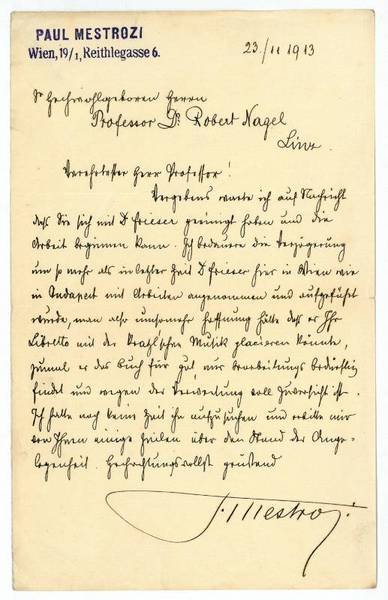 PAUL MESTROZI
Wien, 19/1, Reithlegasse 6.
23./11 1913
Sr Hochwohlgeboren Herrn
Professor Dr Robert Nagel
Linz.
Verehrtester Herr Professor!
Vergebens warte ich auf Nachricht
daß Sie sich mit Dr Frieser geeinigt haben und die
Arbeit beginnen kann. Ich bedauere die Verzögerung
um so mehr als in letzter Zeit Dr Frieser hier in Wien wie
in Budapest mit Arbeiten angenommen und aufgeführt
wurde, man also umsomehr Hoffnung hätte daß er Ihr
Libretto mit der Musik placieren könnte,
zumal er das Buch für gut nur bearbeitungs bedürftig
findet und wegen der Verwendung voll Zuversicht ist.
Ich hatte noch keine Zeit ihn aufzusuchen und erbitte mir
von Ihnen einige Zeilen über den Stand der Ange-
legenheit. Hochachtungsvollst grüßend
P. Mestrozi